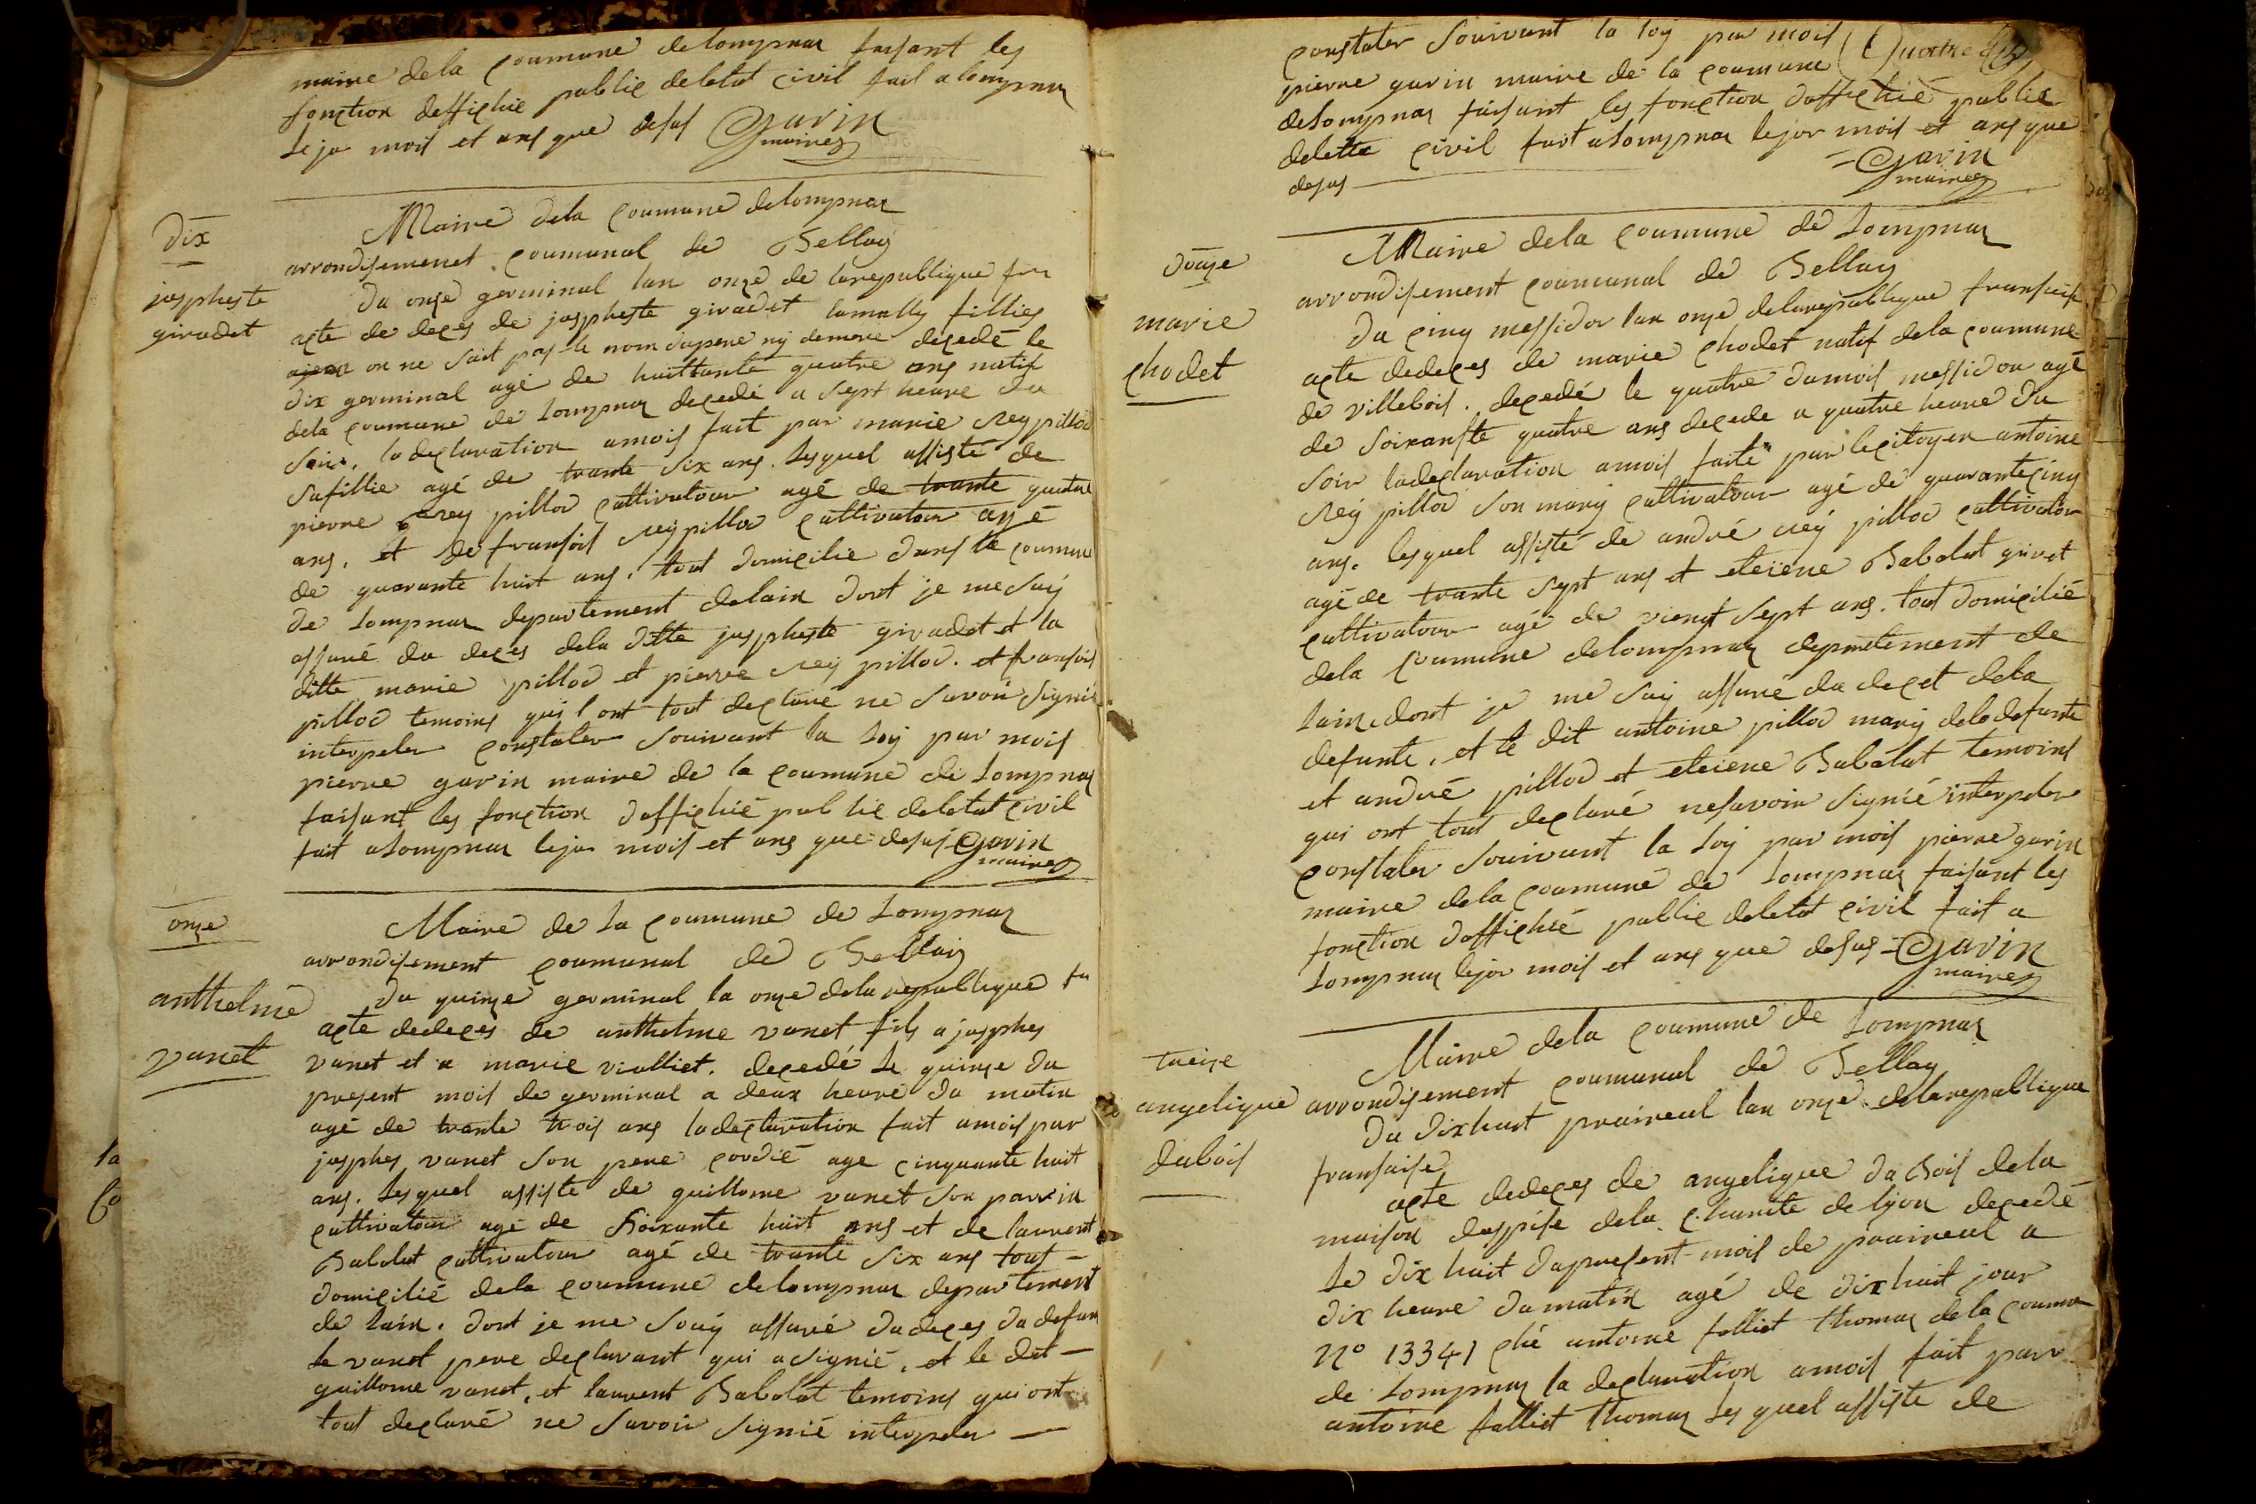 maire dela commune delompnas faisant les
fonction deffichié public deletat civil fait alompnas
le jor mois et ans que desus Garin
maire
dix
jospheste
giradet
Maire dela commune delompnas
arrondisement communal de Bellay
du onze germinal lan onze de larepublique fra
acte de deces de jospheste giradet fillies
on ne sait pas le nom dupere ny demere decedé le
dix germinal agé de huittante quatre ans natif
dela commune de Lompnas decedé a sept heure du
soir. la declaration amois fait par marie rey pillod
safillie agé de trante six ans. lesquel assisté de
pierre rey pillod cultivatour agé de trante quatre
ans. et de fransois rey pillod cultivatour agé
de quarante huit ans. tout domicilie dans la commune
de Lompnas departement delain dont je me suy
assuré du deces dela ditte jospheste giradet et la
ditte marie pillod et pierre rey pillod. et fransois
pillod temoins quil ont tout declaré ne savoir signié
interpeler constater souivant la loy par mois
pierre garin maire de la commune de Lompnas
faisant les fonction deffichié public deletat civil
fait aLompnas lejor mois et ans que desus Garin
maire
onze
anthelme
vanet
Maire de la commune de Lompnas
arrondisement communal de Bellay
du quinze germinal la onze dela republique fra
acte dedeces de anthelme vanet fils a josphes
vanet et a marie violliet. decedé le quinze du
present mois de germinal a deux heure du matin
agé de trante trois ans ladeclaration fait amois par
josphes vanet son pere cordié age cinquante huit
ans. lesquel assiste de guillome vanet son parrin
cultivatour agé de soixante huit ans et de laurent
Babolat cultivatour agé de trante six ans tout
domicilié dela commune delompnas departement
de lain. dont je me souy assuré dudeces du defun
le vanet pere declarant qui asignié. et le dit
guillome vanet, et laurent Babolat temoins qui ont
tout declaré ne savoir signié interpeler
constater souivant la loy par mois
Quatre
pierre garin maire de la commune
deLompnas faisant les fonction doffichié public
deletta civil fait alompnas lejor mois et ans que
desus Garin
maire
douze
marie
chodet
Maire dela commune de Lompnas
arrondisement communal de Bellay
du cinq messidor lan onze delarepublique fransaise
acte dedeces de marie chodet natif dela commune
de villebois. decedé le quatre dumois messidor agé
de soixanste quatre ans decede a quatre heure du
soir ladeclaration amois faite par lecitoyen antoine
rey pillod son mary cultivatour agé de quarantecinq
ans. lesquel assisté de andré rey pillod cultivatour
agé de trante sept ans et eteiene Babolat grivet
cultivatour agé de vienst sept ans. tout domicilié
dela commune delompnas departement de
lain. dont je me suy assuré du decet dela
defunte, et le dit antoine pillod mary dela defunte
et andré pillod et eteiene Babolat temoins
qui ont tout declaré nesavoir signié interpeler
constater souivant la loy par mois pierre garin
maire dela commune de Lompnas faisant les
fonction doffichié public deletat civil fait a
Lompnas lejor mois et ans que desus Garin
maire
treize
angelique
dubois
Maire dela commune de Lompnas
arrondisement communal de Bellay
du dixhuit praireul lan onze delarepublique
fransaise
acte dedeces de angelique du Bois dela
maison dospise dela charite de lyon decedé
le dix huit dupresent mois de praireul a
dix heure dumatin agé de dix huit jour
no 13341 ché antoine folliet thomas dela commu
de Lompnas la declaration amois fait par
antoine folliet thomas lesquel assisté de